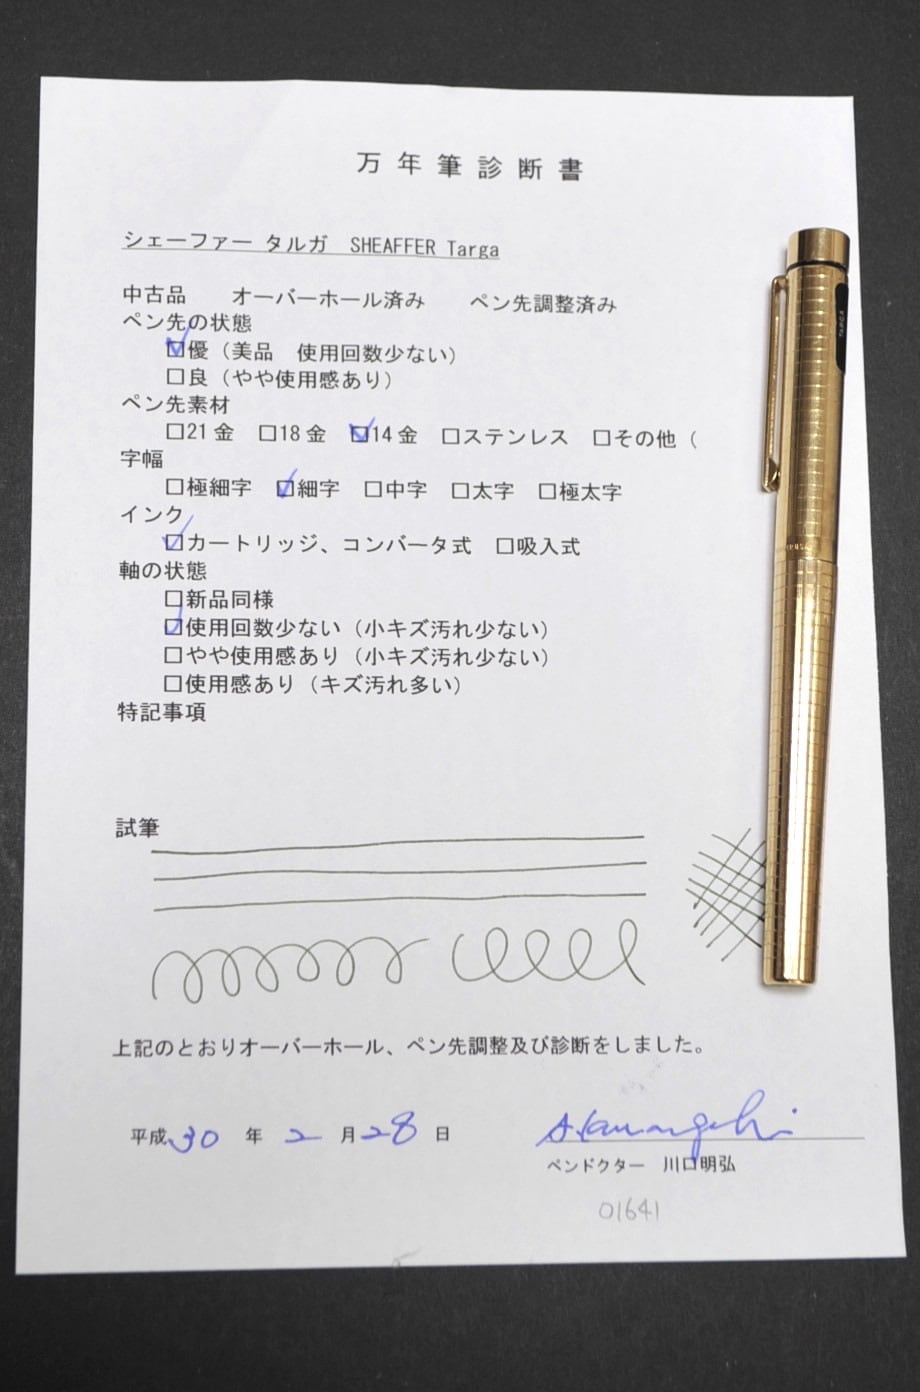 万年筆診断書
シェーファー タルガ SHEAFFER Targa
中古品 オーバーホール済み ペン先調整済み
ペン先の状態
☑優（美品 使用回数少ない）
□良（やや使用感あり）
ペン先素材
□21金 □18金 ☑14金 □ステンレス □その他（
字幅
□極細字 ☑細字 □中字 □太字 □極太字
インク
☑カートリッジ、コンバータ式 □吸入式
軸の状態
□新品同様
☑使用回数少ない（小キズ汚れ少ない）
□やや使用感あり（小キズ汚れ少ない）
□使用感あり（キズ汚れ多い）
特記事項
試筆
上記のとおりオーバーホール、ペン先調整及び診断をしました。
平成30年2月28日
ペンドクター 川口明弘
01641
TARGA